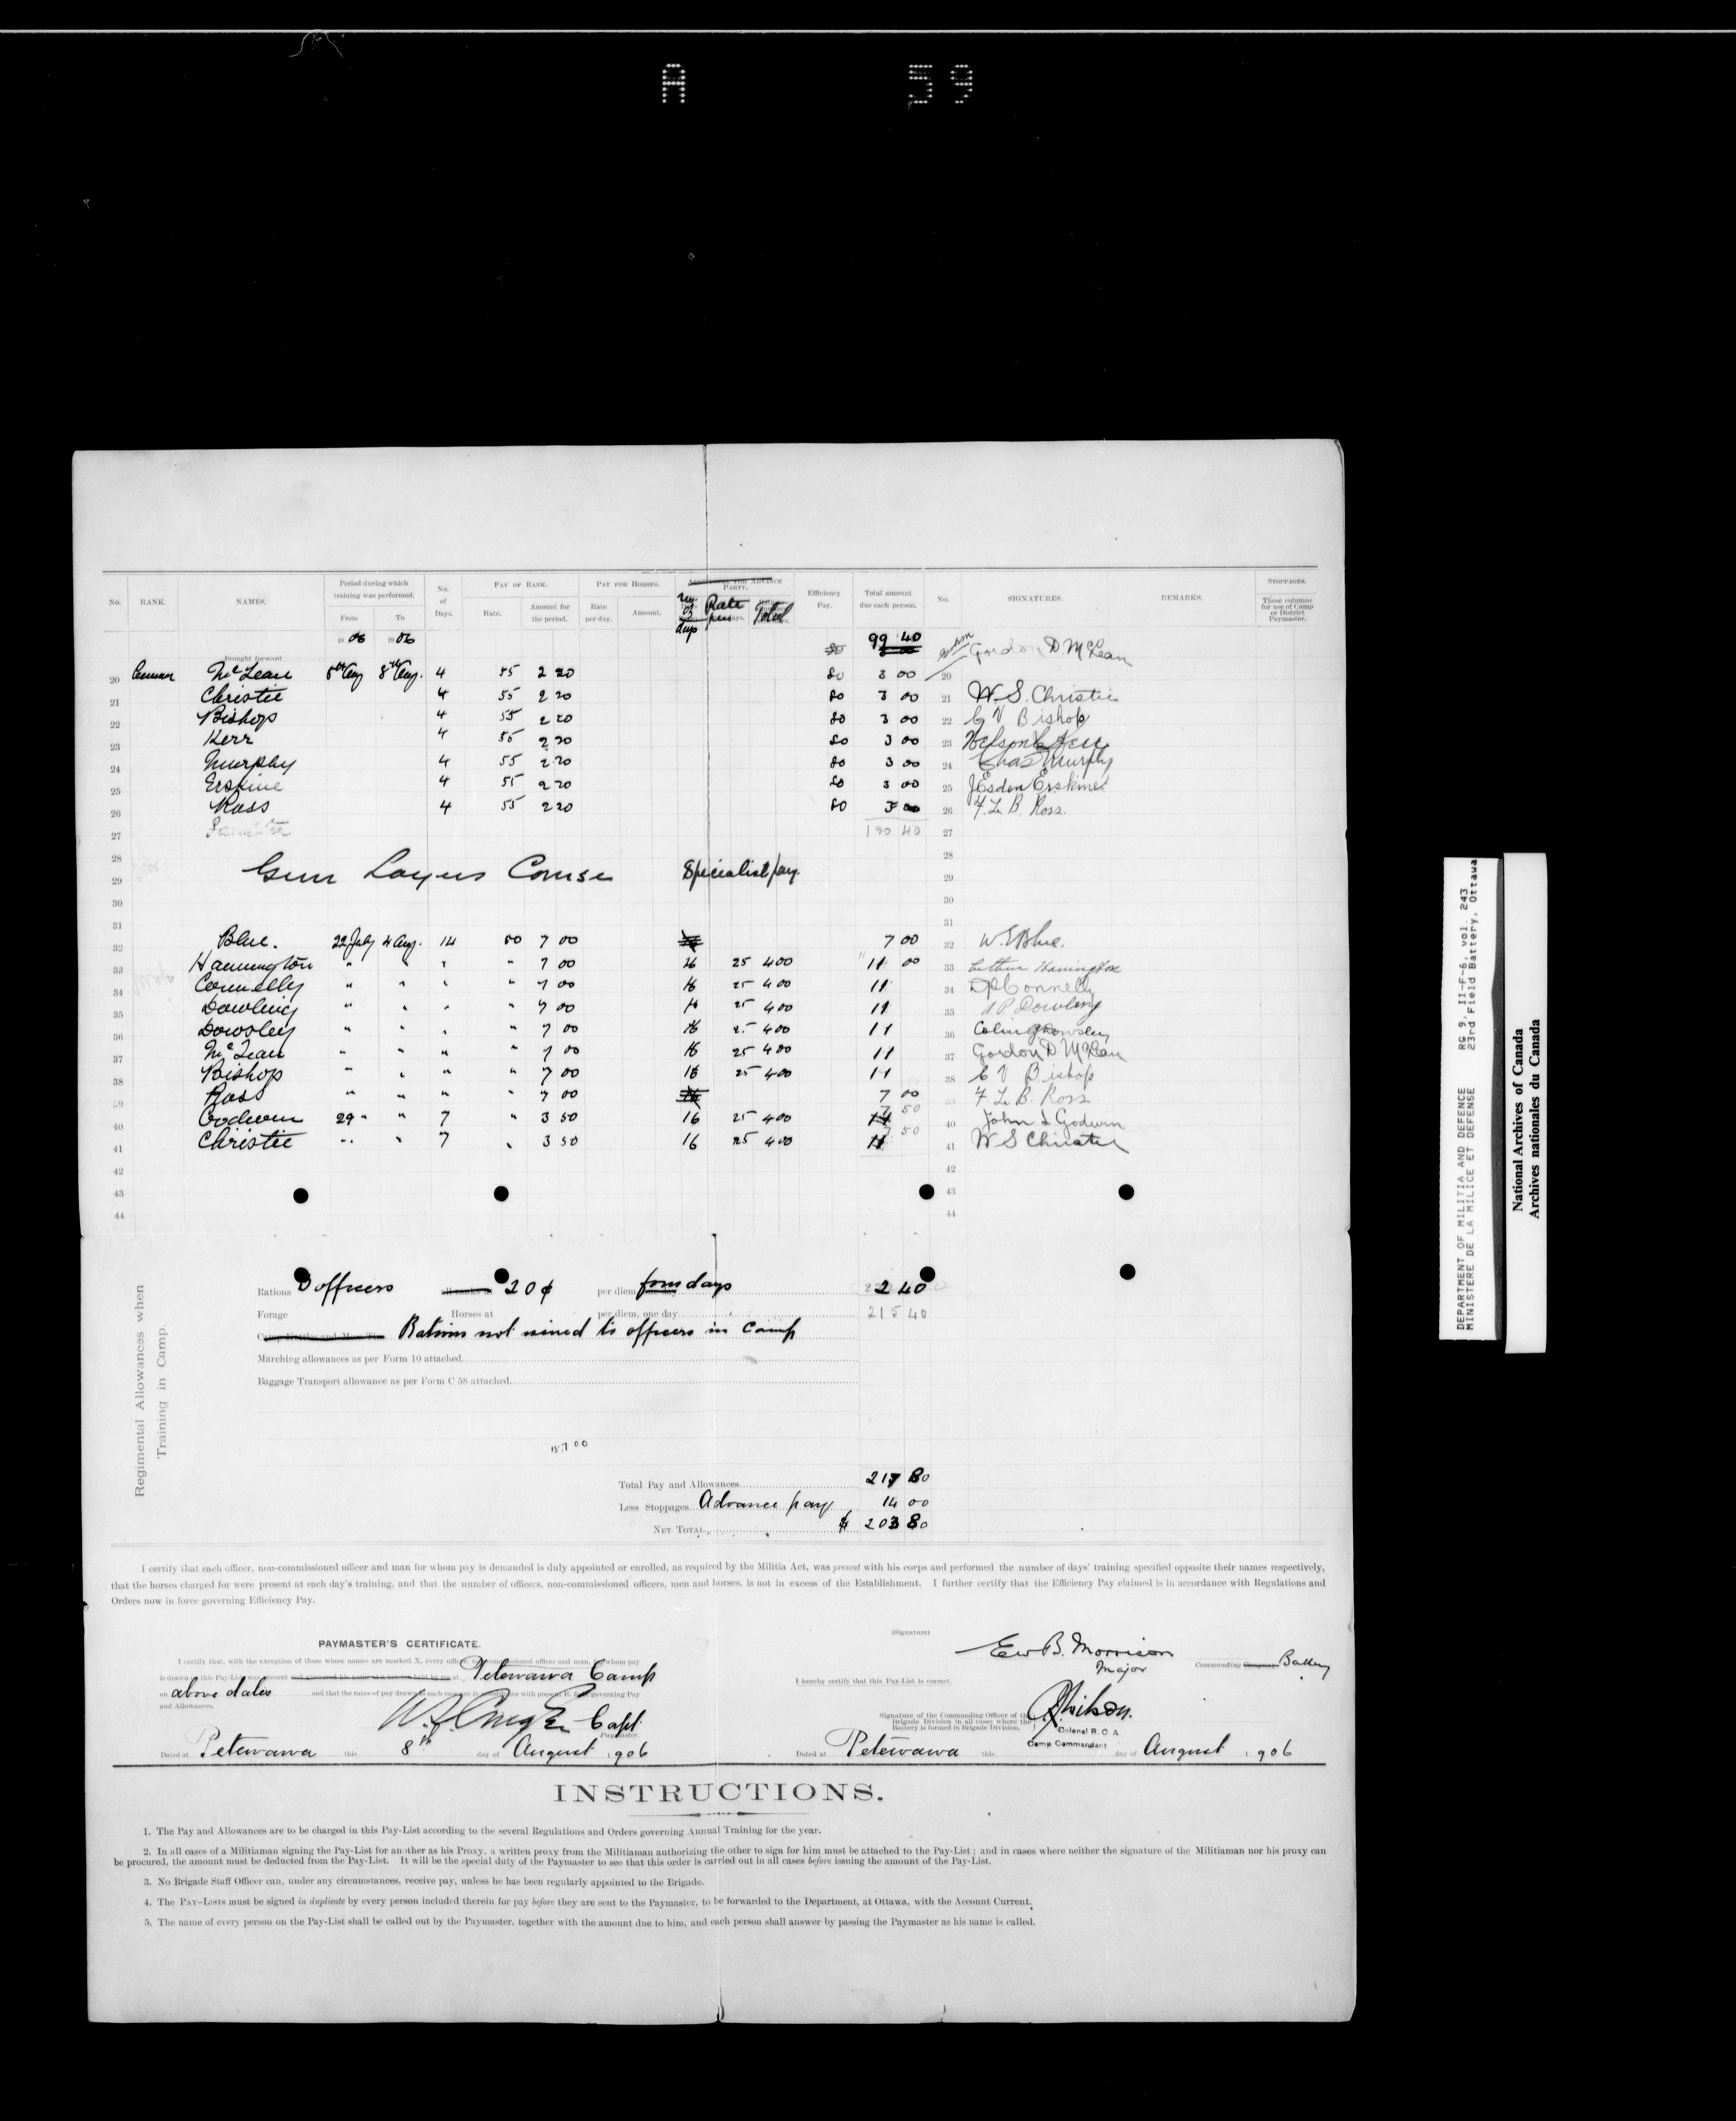 A 59
No. RANK. NAMES. Period during which training was performed. No. of Days. PAY OF RANK. PAY FOR HORSES. ADVANCE PARTY. Efficiency Pay. Total amount due each person. No. SIGNATURES. REMARKS. STOPPAGES.
From To Rate. Amount for the period. Rate per day. Amount. No. of days Rate Total These columns for use of Camp or District Paymaster.
1906 1906
Brought forward 99 40
20 Gunner McLean 5th Aug 8th Aug. 4 55 2 20 80 3 00 20 Gordon D McLean
21 Christie 4 55 2 20 80 3 00 21 W. S. Christie
22 Bishop 4 55 2 20 80 3 00 22 C V Bishop
23 Kerr 4 55 2 20 80 3 00 23 Nelson Kerr
24 Murphy 4 55 2 20 80 3 00 24 Chas Murphy
25 Erskine 4 55 2 20 80 3 00 25 J Esden Erskine
26 Ross 4 55 2 20 80 3 00 26 F. Le B. Ross.
27 120 40 27
28 28
29 Gun Layers Course Specialist pay. 29
30 30
31 31
32 Blue. 22 July 4 Aug. 14 50 7 00 7 00 32 W. Blue.
33 Hannington " " " " 7 00 16 25 4 00 11 00 33 Hannington
34 Connelly " " " " 7 00 16 25 4 00 11 34 D P Connelly
35 Dowling " " " " 7 00 16 25 4 00 11 35 A. P. Dowling
36 Dowsley " " " " 7 00 16 25 4 00 11 36 Colin Dowsley
37 McLean " " " " 7 00 16 25 4 00 11 37 Gordon D. McLean
38 Bishop " " " " 7 00 16 25 4 00 11 38 C V Bishop
39 Ross " " " " 7 00 7 00 39 F. Le B. Ross
40 Godwin 29 " " 7 " 3 50 16 25 4 00 7 50 40 John Godwin
41 Christie " " 7 " 3 50 16 25 4 00 11 7 50 41 W S Christie
42 42
43 43
44 44
Regimental Allowances when Training in Camp.
Rations 3 officers 20 ¢ per diem four days 2 40
Forage Horses at per diem, one day 215 40
Rations not issued to officers in Camp
Marching allowances as per Form 10 attached
Baggage Transport allowance as per Form C 58 attached
157 00
Total Pay and Allowances 217 80
Less Stoppages Advance pay 14 00
NET TOTAL $ 203 80
I certify that each officer, non-commissioned officer and man for whom pay is demanded is duly appointed or enrolled, as required by the Militia Act, was present with his corps and performed the number of days' training specified opposite their names respectively,
that the horses charged for were present at each day's training, and that the number of officers, non-commissioned officers, men and horses, is not in excess of the Establishment. I further certify that the Efficiency Pay claimed is in accordance with Regulations and
Orders now in force governing Efficiency Pay.
PAYMASTER'S CERTIFICATE.
I certify that, with the exception of those whose names are marked X, every officer, non-commissioned officer and man, for whom pay
is drawn in this Pay-List was present and answered his name at a muster held by me at Petewawa Camp
on above dates and that the rates of pay drawn in each case are in accordance with present R. & O. governing Pay
and Allowances.
Capt.
Paymaster.
Dated at Petewawa this 8th day of August 1906
(Signature)
Ew B. Morrison
Major Commanding Company Battery
I hereby certify that this Pay-List is correct.
Signature of the Commanding Officer of the
Brigade Division in all cases where the
Battery is formed in Brigade Division.
Colonel R. C. A.
Camp Commandant
Dated at Petewawa this day of August 1906
INSTRUCTIONS.
1. The Pay and Allowances are to be charged in this Pay-List according to the several Regulations and Orders governing Annual Training for the year.
2. In all cases of a Militiaman signing the Pay-List for another as his Proxy, a written proxy from the Militiaman authorizing the other to sign for him must be attached to the Pay-List; and in cases where neither the signature of the Militiaman nor his proxy can
be procured, the amount must be deducted from the Pay-List. It will be the special duty of the Paymaster to see that this order is carried out in all cases before issuing the amount of the Pay-List.
3. No Brigade Staff Officer can, under any circumstances, receive pay, unless he has been regularly appointed to the Brigade.
4. The PAY-LISTS must be signed in duplicate by every person included therein for pay before they are sent to the Paymaster, to be forwarded to the Department, at Ottawa, with the Account Current.
5. The name of every person on the Pay-List shall be called out by the Paymaster, together with the amount due to him, and each person shall answer by passing the Paymaster as his name is called.
DEPARTMENT OF MILITIA AND DEFENCE RG 9, II-F-6, vol. 243
MINISTERE DE LA MILICE ET DEFENSE 23rd Field Battery, Ottawa
National Archives of Canada
Archives nationales du Canada